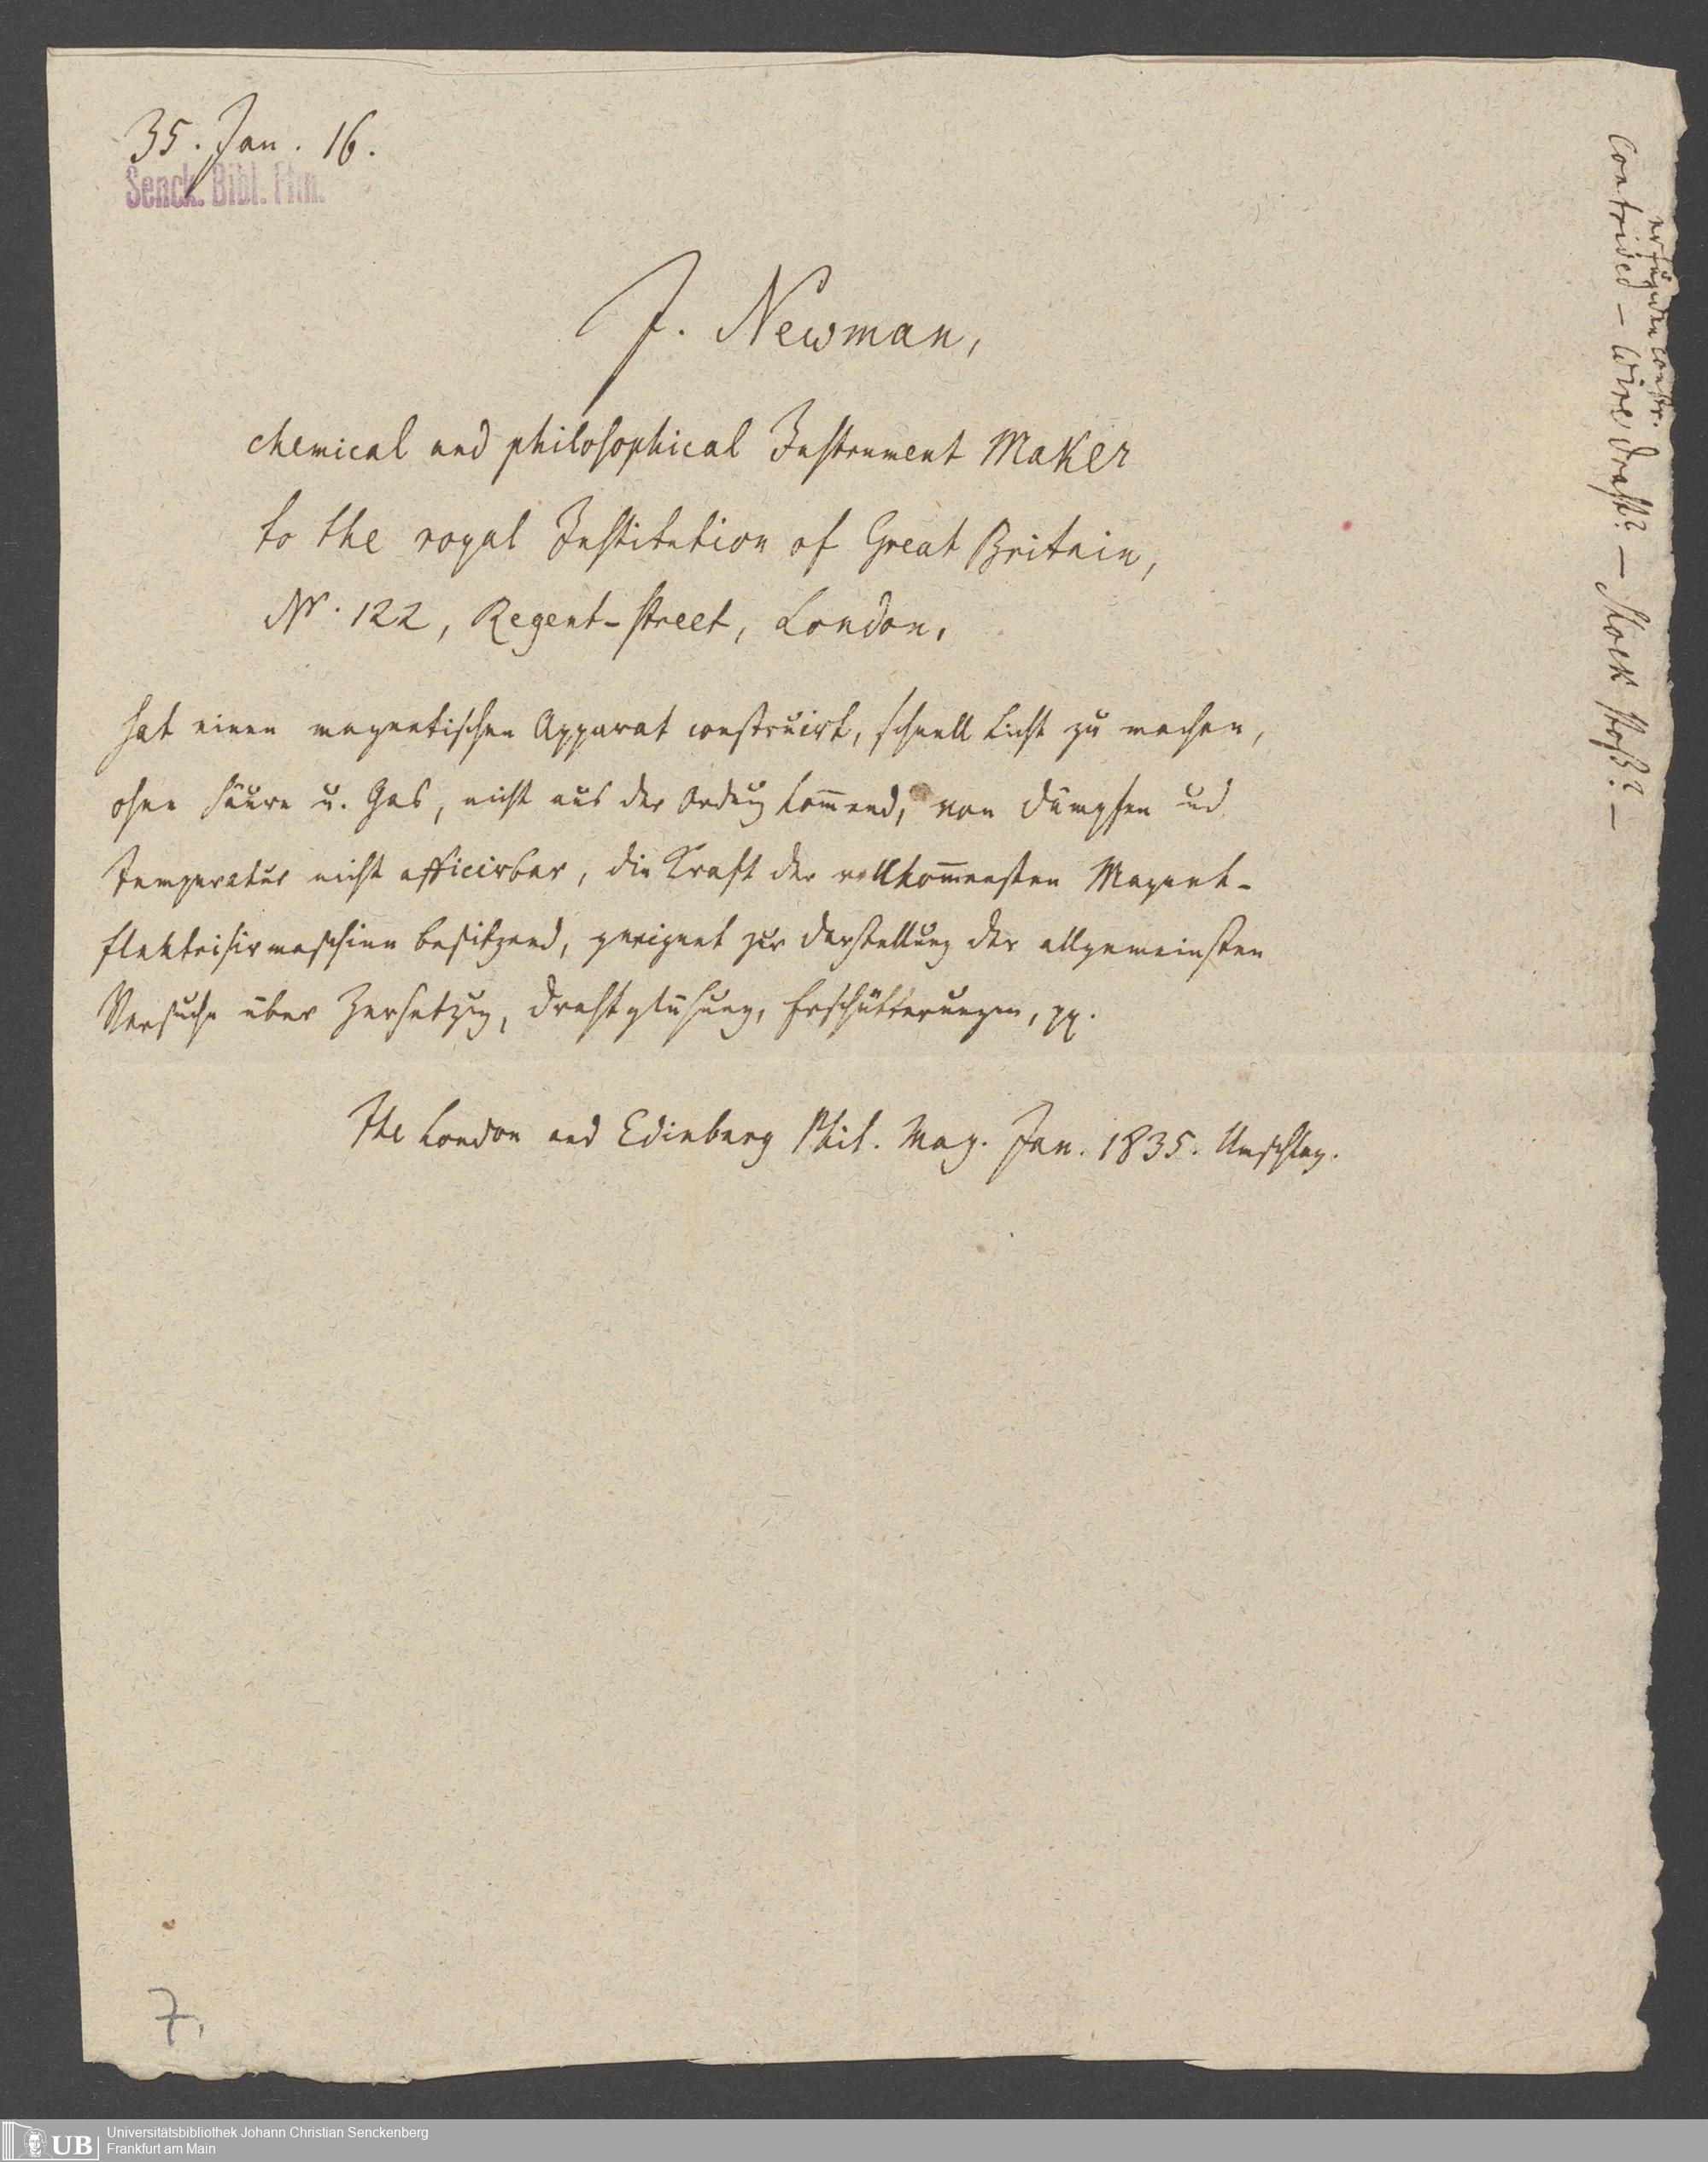 35. Jan. 16.
Senck. Bibl. Ffm.
J. Newman,
chemical and philosophical Instrument Maker
to the royal Institution of Great Britain,
Nr. 122, Regent-street, London,
hat einen magnetischen Apparat construirt, schnell Licht zu machen,
ohne Säure u. Gas, nicht aus der Ordnung kom̅end, von Dämpfen und
Temperatur nicht afficirbar, die Kraft der vollkom̅ensten Magnet-
Elektrisirmaschine besitzend, geeignet zur Darstellung der allgemeinsten
Versuche über Zersetzung, Drahtglühung, Erschütterungen, pp.
The London and Edinburg Phil. Mag. Jan. 1835. Umschlag.
erfunden constr.
Contrived – Wire Draht? – Shock Stoß? –
7.
UB
Universitätsbibliothek Johann Christian Senckenberg
Frankfurt am Main